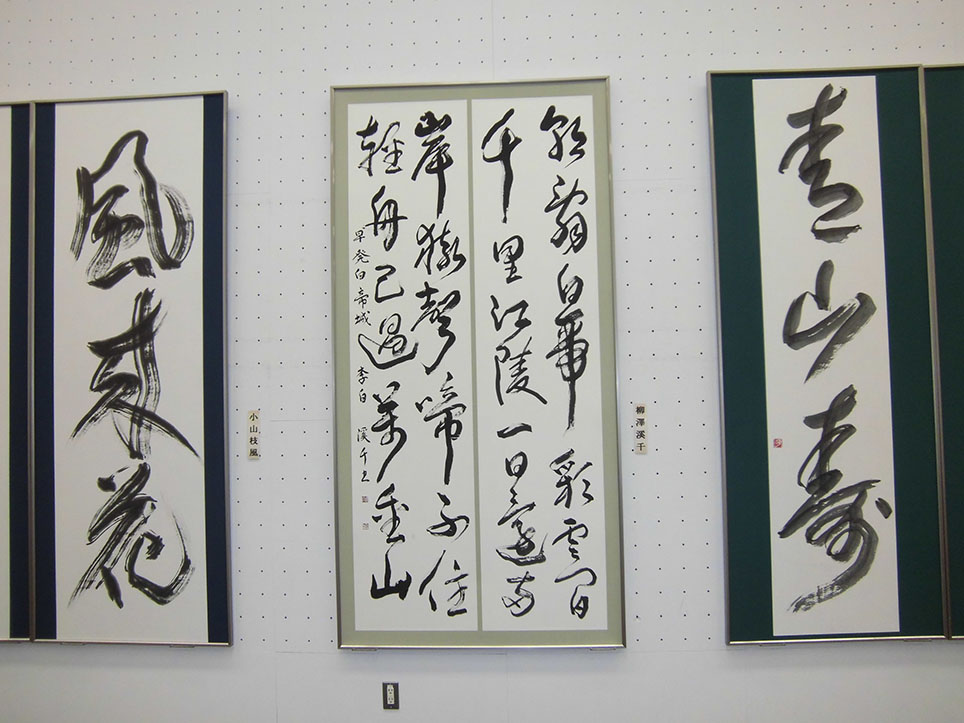 青山壽
柳澤溪千
朝辭白帝彩雲間
千里江陵一日還両
岸猿聲啼不住
軽舟已過萬重山
早発白帝城 李白 溪千书
小山枝風
風来花